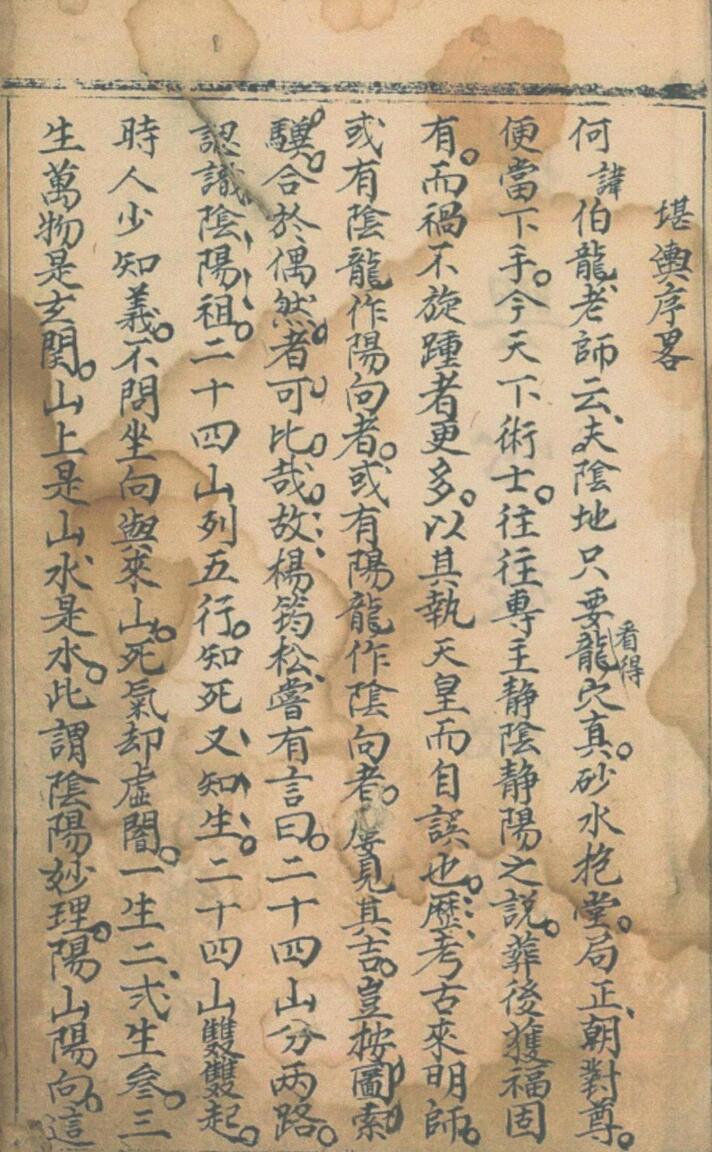 堪輿序畧
何諱伯龍老師云、夫陰地只要看得龍穴真。砂水抱堂。局正、朝對尊。
便當下手。今天下術士。往往專主静陰静陽之說。葬後獲福固
有。而禍不旋踵者更多。以其執天皇而自誤也。歷考古來明師。
或有陰龍作陽向者。或有陽龍作陰向者。屡見其吉。豈按圖索
驥。合於偶然。者可比哉。故楊筠松、嘗有言曰。二十四山分两路。
認識陰陽祖。二十四山列五行。知死又知生。二十四山雙雙起。
時人少知義。不問坐向與來山。死氣却虚闇。一生二、弍生叁。三
生萬物是玄関。山上是山、水是水。此謂陰陽妙理。陽山陽向。這